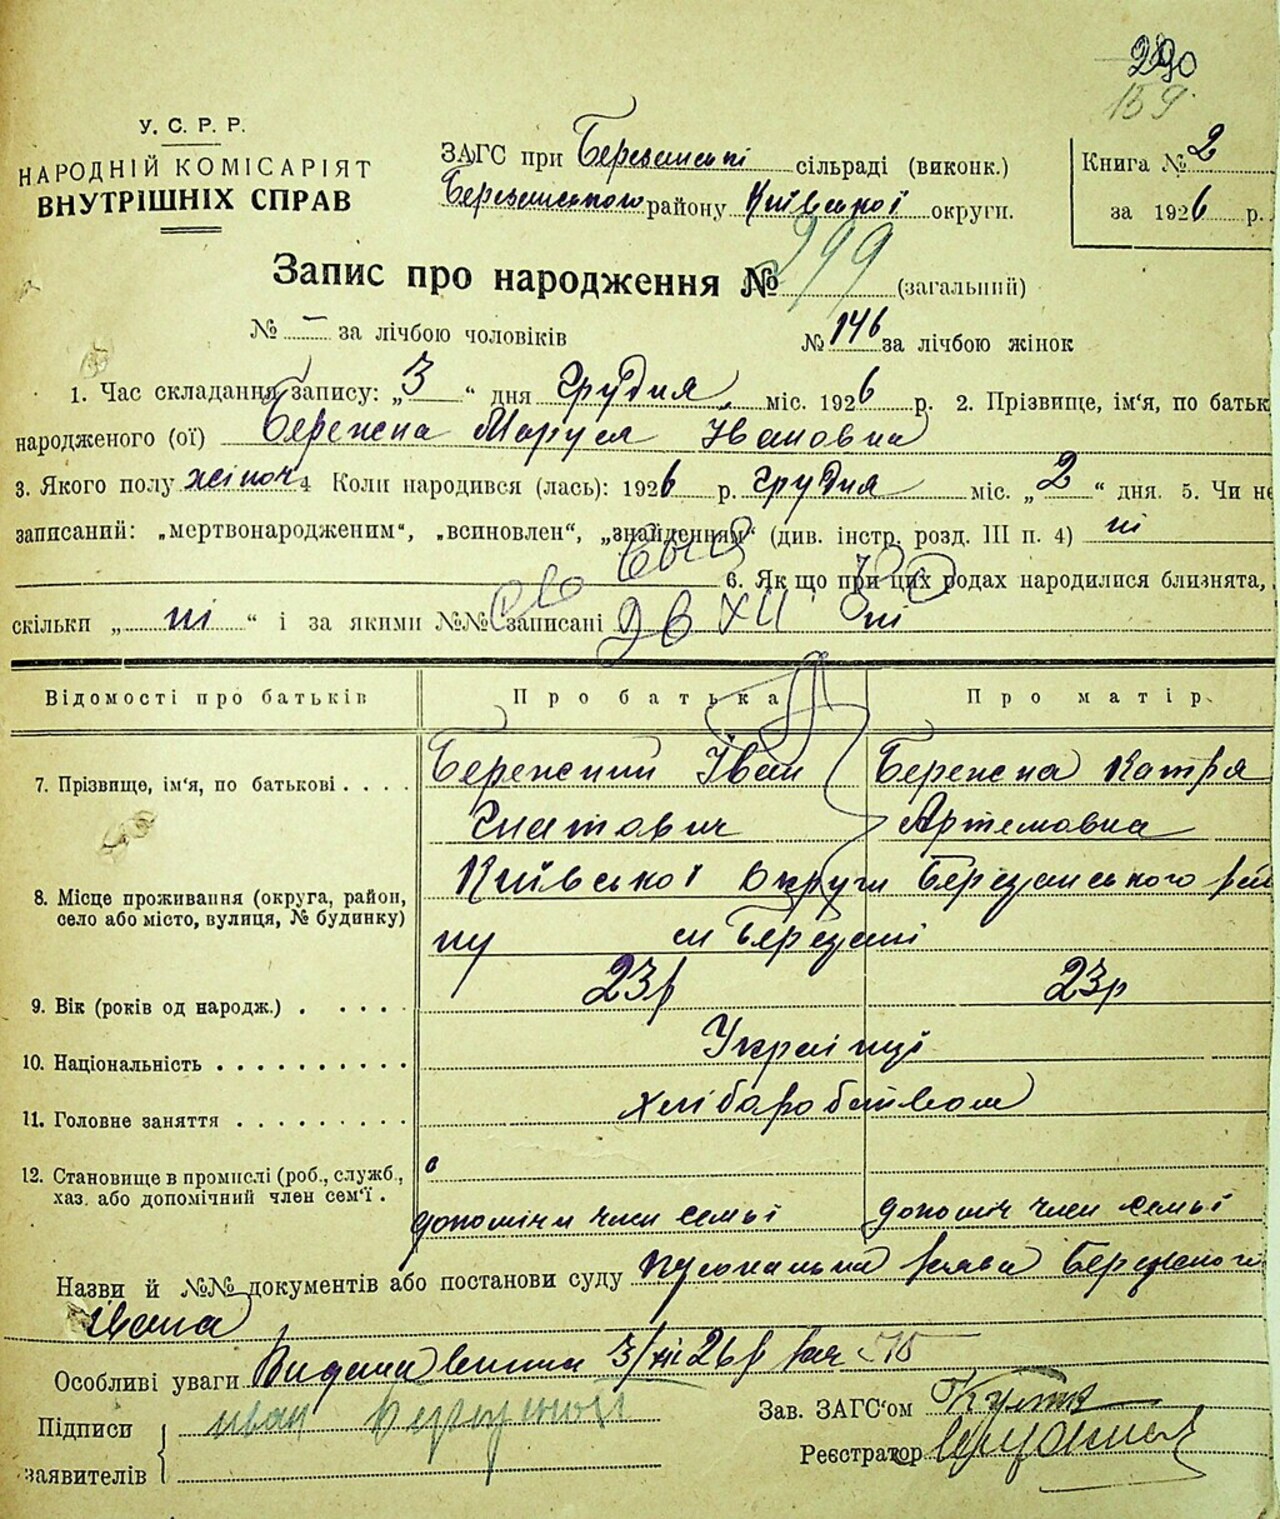 290
159
У. С. Р. Р.
НАРОДНІЙ КОМІСАРІЯТ
ВНУТРІШНІХ СПРАВ
ЗАГС при Березанській сільраді (виконк.)
Березанського району Київської округи.
Книга № 2
за 1926 р.
Запис про народження № 299 (загальний)
№ – за лічбою чоловіків
№ 146 за лічбою жінок
1. Час складання запису: „3“ дня Грудня міс. 1926 р. 2. Прізвище, ім'я, по батьк
народженого (ої) Бережна Маруся Івановна
3. Якого полу жіноч 4 Коли народився (лась): 1926 р. Грудня міс. „2“ дня. 5. Чи не
записаний: „мертвонародженим“, „всиновлен“, „знайденням“ (див. інстр. розд. III п. 4) ні
6. Як що при цих родах народилися близнята,
скільки „ні“ і за якими №№ записані ні
Відомості про батьків Про батька Про матір
7. Прізвище, ім'я, по батькові . . . . Бережний Іван Бережна Катря
Гнатович Артемовна
8. Місце проживання (округа, район,
село або місто, вулиця, № будинку)
Київської Округи Березанського рай
ну м Березані
9. Вік (років од народж.) . . . . . 23р 23р
10. Національність . . . . . . . . . . Українці
11. Головне заняття . . . . . . . . . хліборобством
12. Становище в промислі (роб., служб.,
хаз. або допомічний член сем'ї .
допомічн член семьі допоміч член семьі
Назви й №№ документів або постанови суду заява Бережного
Івана
Особливі уваги Видана 3/XII 26р
Підписи
заявителів
иван
Зав. ЗАГС'ом
Реєстратор